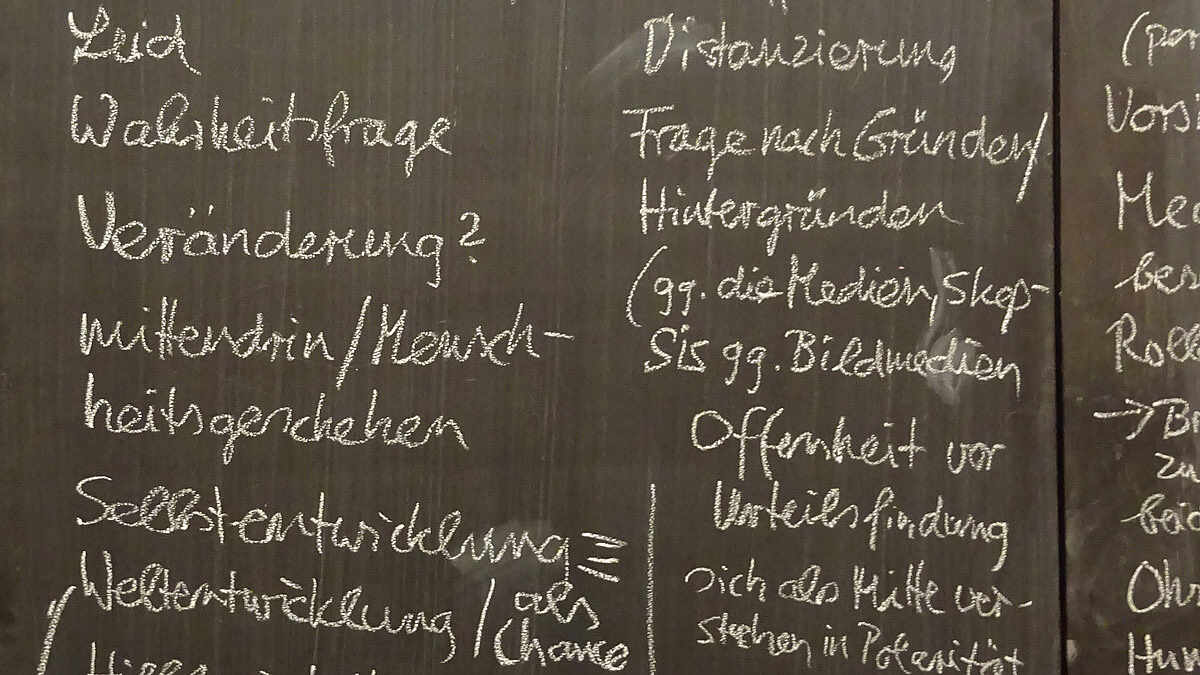 Leid
Wahrheitsfrage
Veränderung?
mittendrin/Mensch-
heitsgeschehen
Selbstentwicklung =
Weltentwicklung / als
Chance
Distanzierung
Frage nach Gründen/
Hintergründen
(gg. die Medien, Skep-
sis gg. Bildmedien
Offenheit vor
Urteilsfindung
sich als Mitte ver-
stehen in Polarität
(per
Vors
Me
bes
Roll
→ B
zu
bei
Oh
Hum